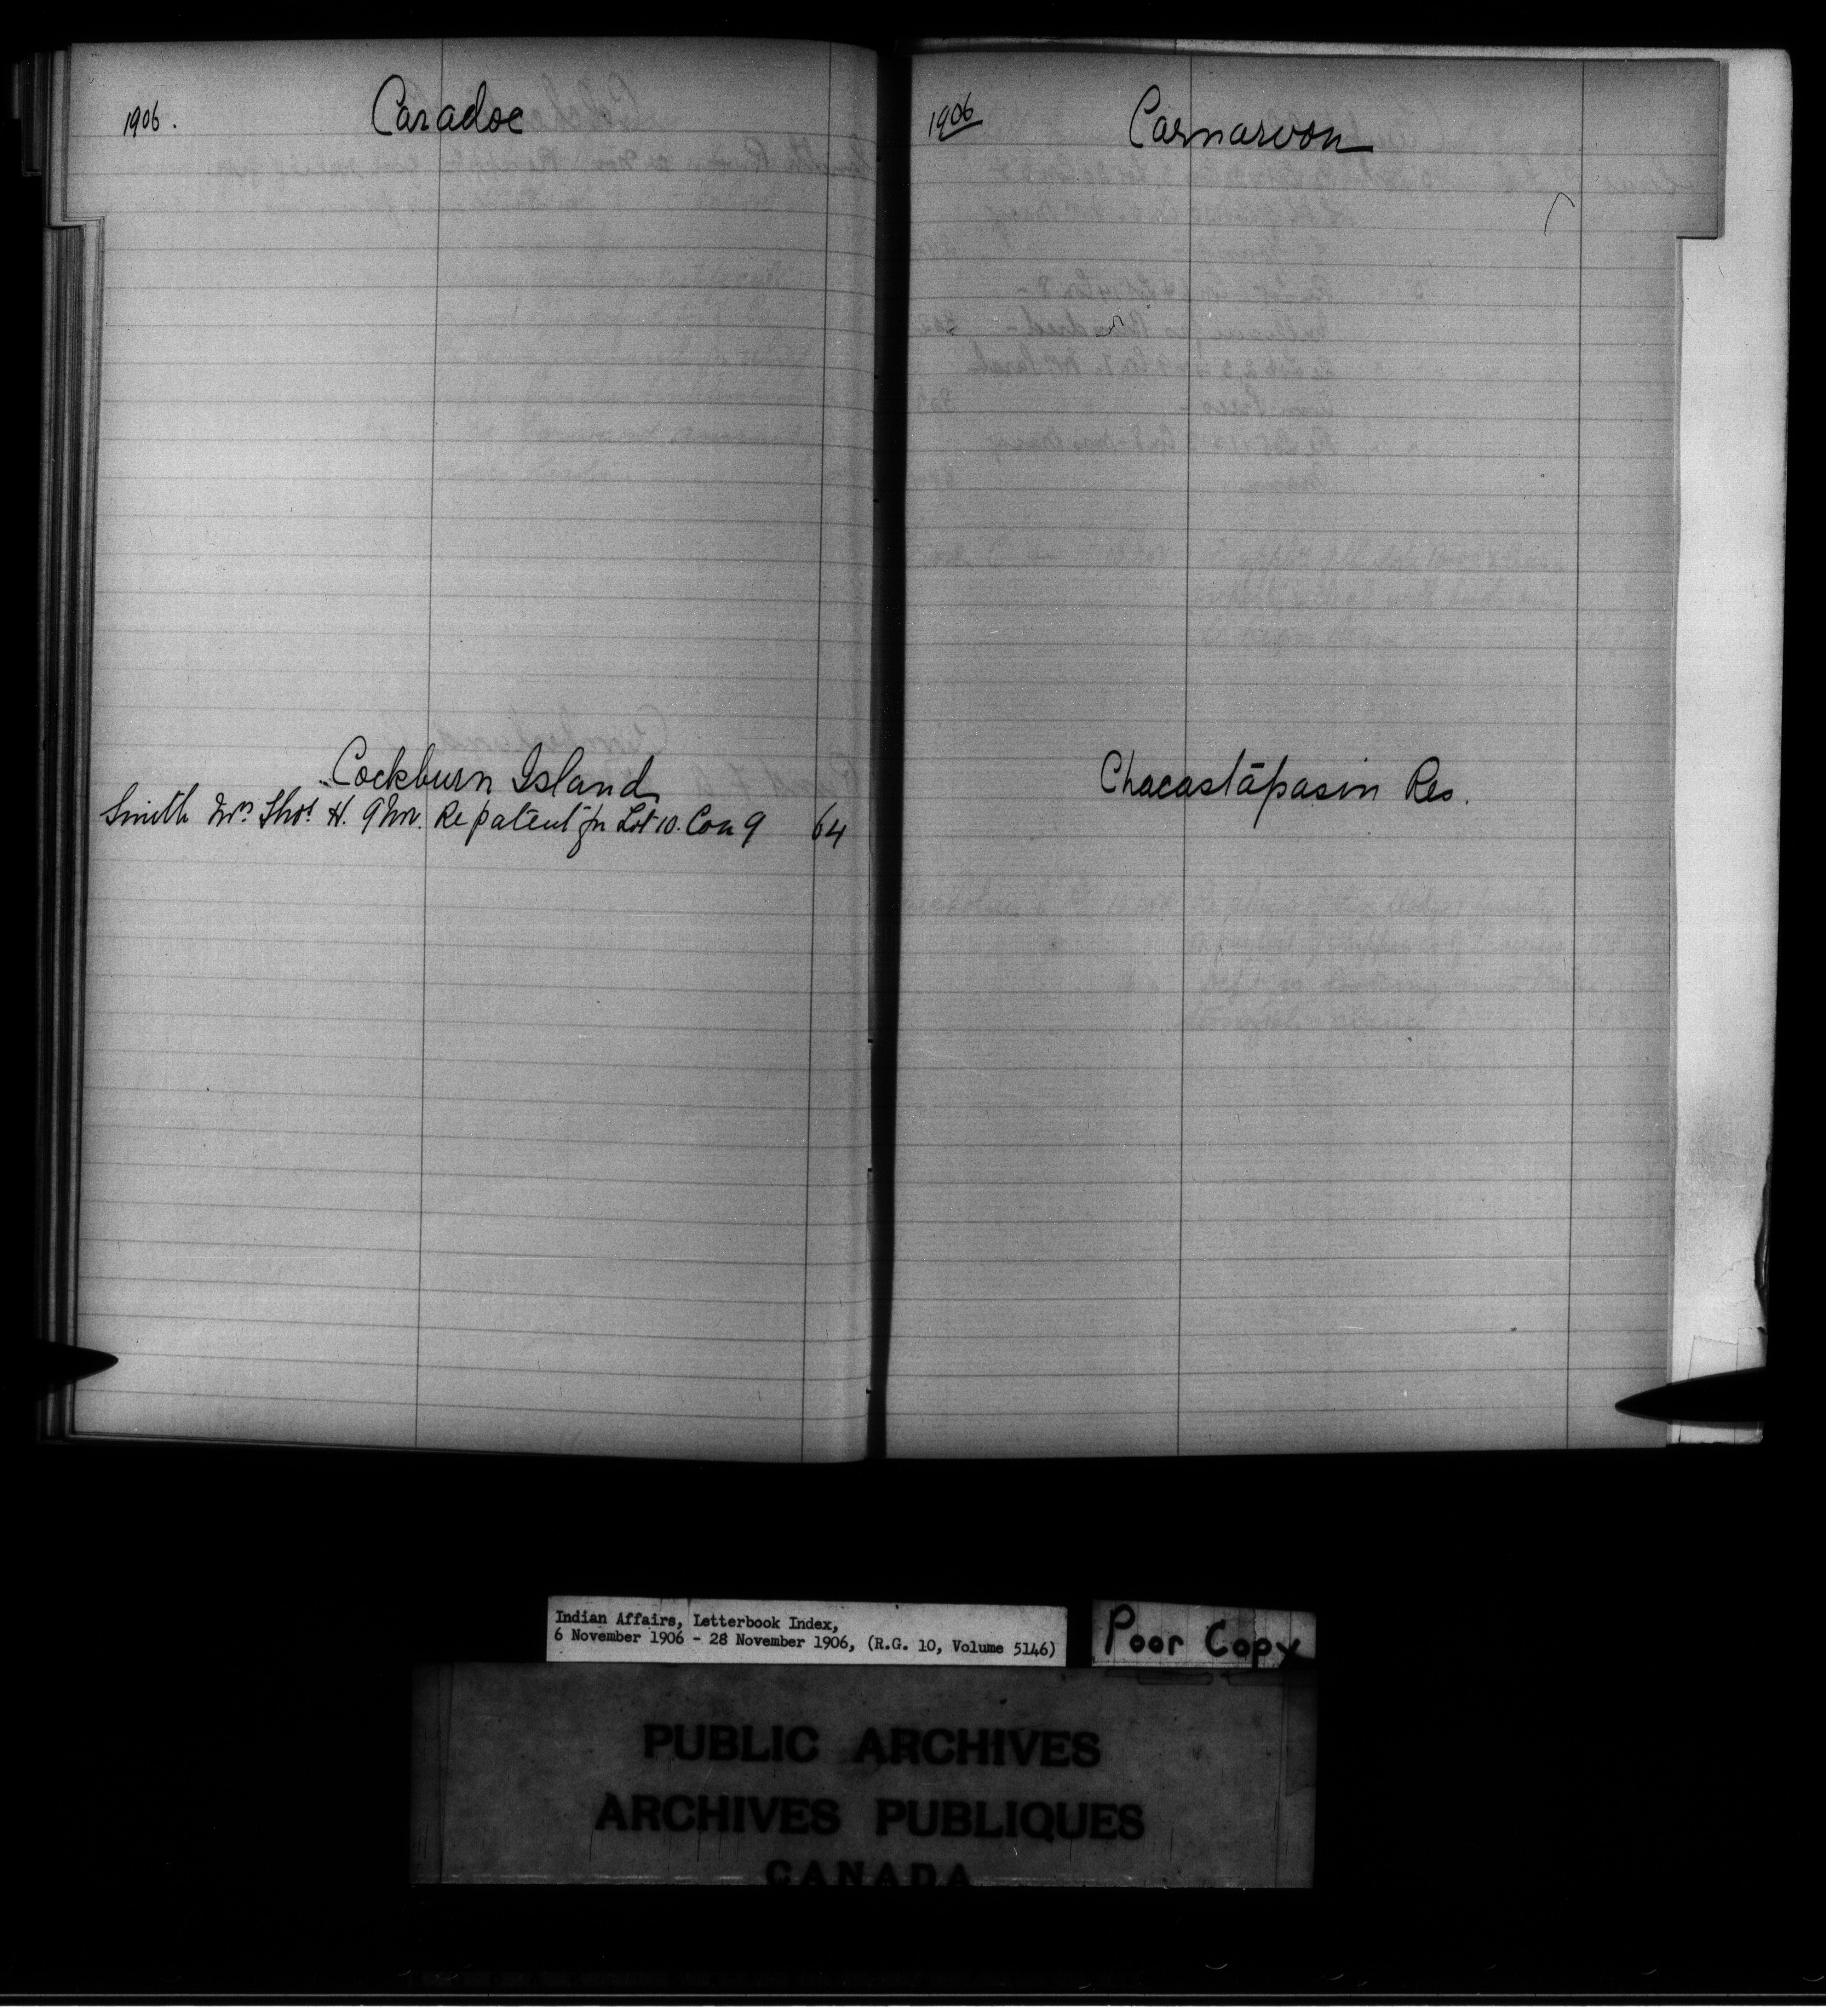 1906.
Caradoc
Cockburn Island
Smith Mrs Thos H. 9 Nov. Re patent for Lot 10. Con 9 64
1906
Carnarvon
Chacastāpasin Res.
Indian Affairs, Letterbook Index,
6 November 1906 - 28 November 1906, (R.G. 10, Volume 5146)
Poor Copy
PUBLIC ARCHIVES
ARCHIVES PUBLIQUES
CANADA